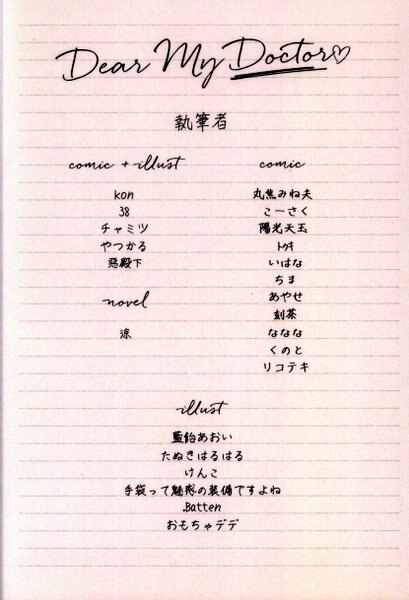 Dear My Doctor♡
執筆者
comic + illust
kon
38
チャミツ
やつかる
惡殿下
novel
涼
comic
丸焦みね夫
こーさく
陽光天玉
トゥキ
いはな
ちま
あやせ
刻茶
ななな
くのと
リコテキ
illust
藍飴あおい
たぬきはるはる
けんこ
手袋って魅惑の装備ですよね
.Batten
おもちゃデデ